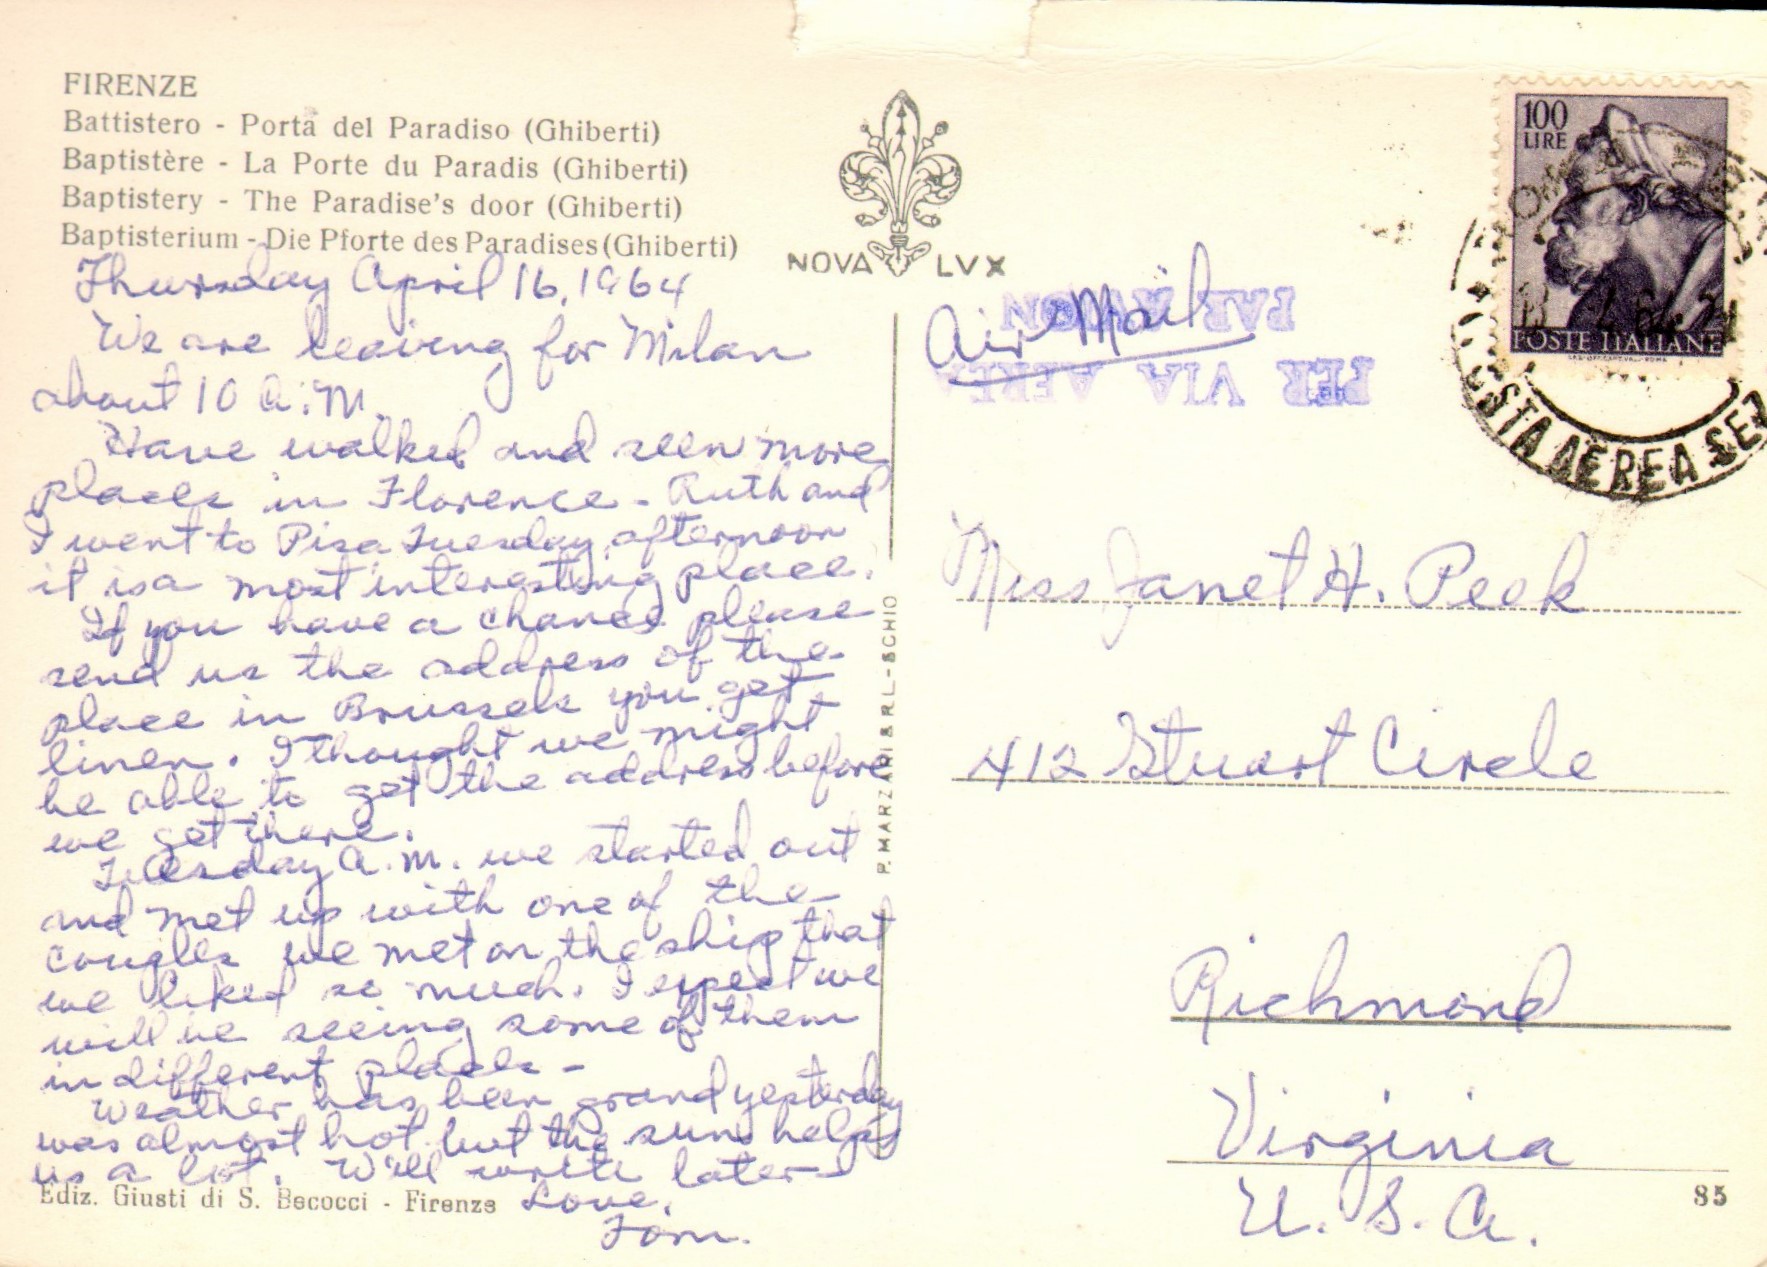 FIRENZE
Battistero - Porta del Paradiso (Ghiberti)
Baptistère - La Porte du Paradis (Ghiberti)
Baptistery - The Paradise's door (Ghiberti)
Baptisterium - Die Pforte des Paradises (Ghiberti)
NOVA LVX
Thursday April 16, 1964
We are leaving for Milan
about 10 A.M.
Have walked and seen more
places in Florence - Ruth and
I went to Pisa Tuesday afternoon
it is a most interesting place.
If you have a chance please
send us the address of the
place in Brussels you get
linen. I thought we might
be able to get the address before
we get there.
Tuesday A.M. we started out
and met up with one of the
couples we met on the ship that
we liked so much. I expect we
will be seeing some of them
in different places -
Weather has been grand yesterday
was almost hot but the sun helps
us a lot. Will write later -
Love,
Tom.
Ediz. Giusti di S. Becocci - Firenze
P. MARZARI S.R.L. - SCHIO
Air Mail
PAR AVION
PER VIA AEREA
100
LIRE
POSTE ITALIANE
POSTA AEREA
Miss Janet H. Peek
412 Stuart Circle
Richmond
Virginia
U.S.A.
85